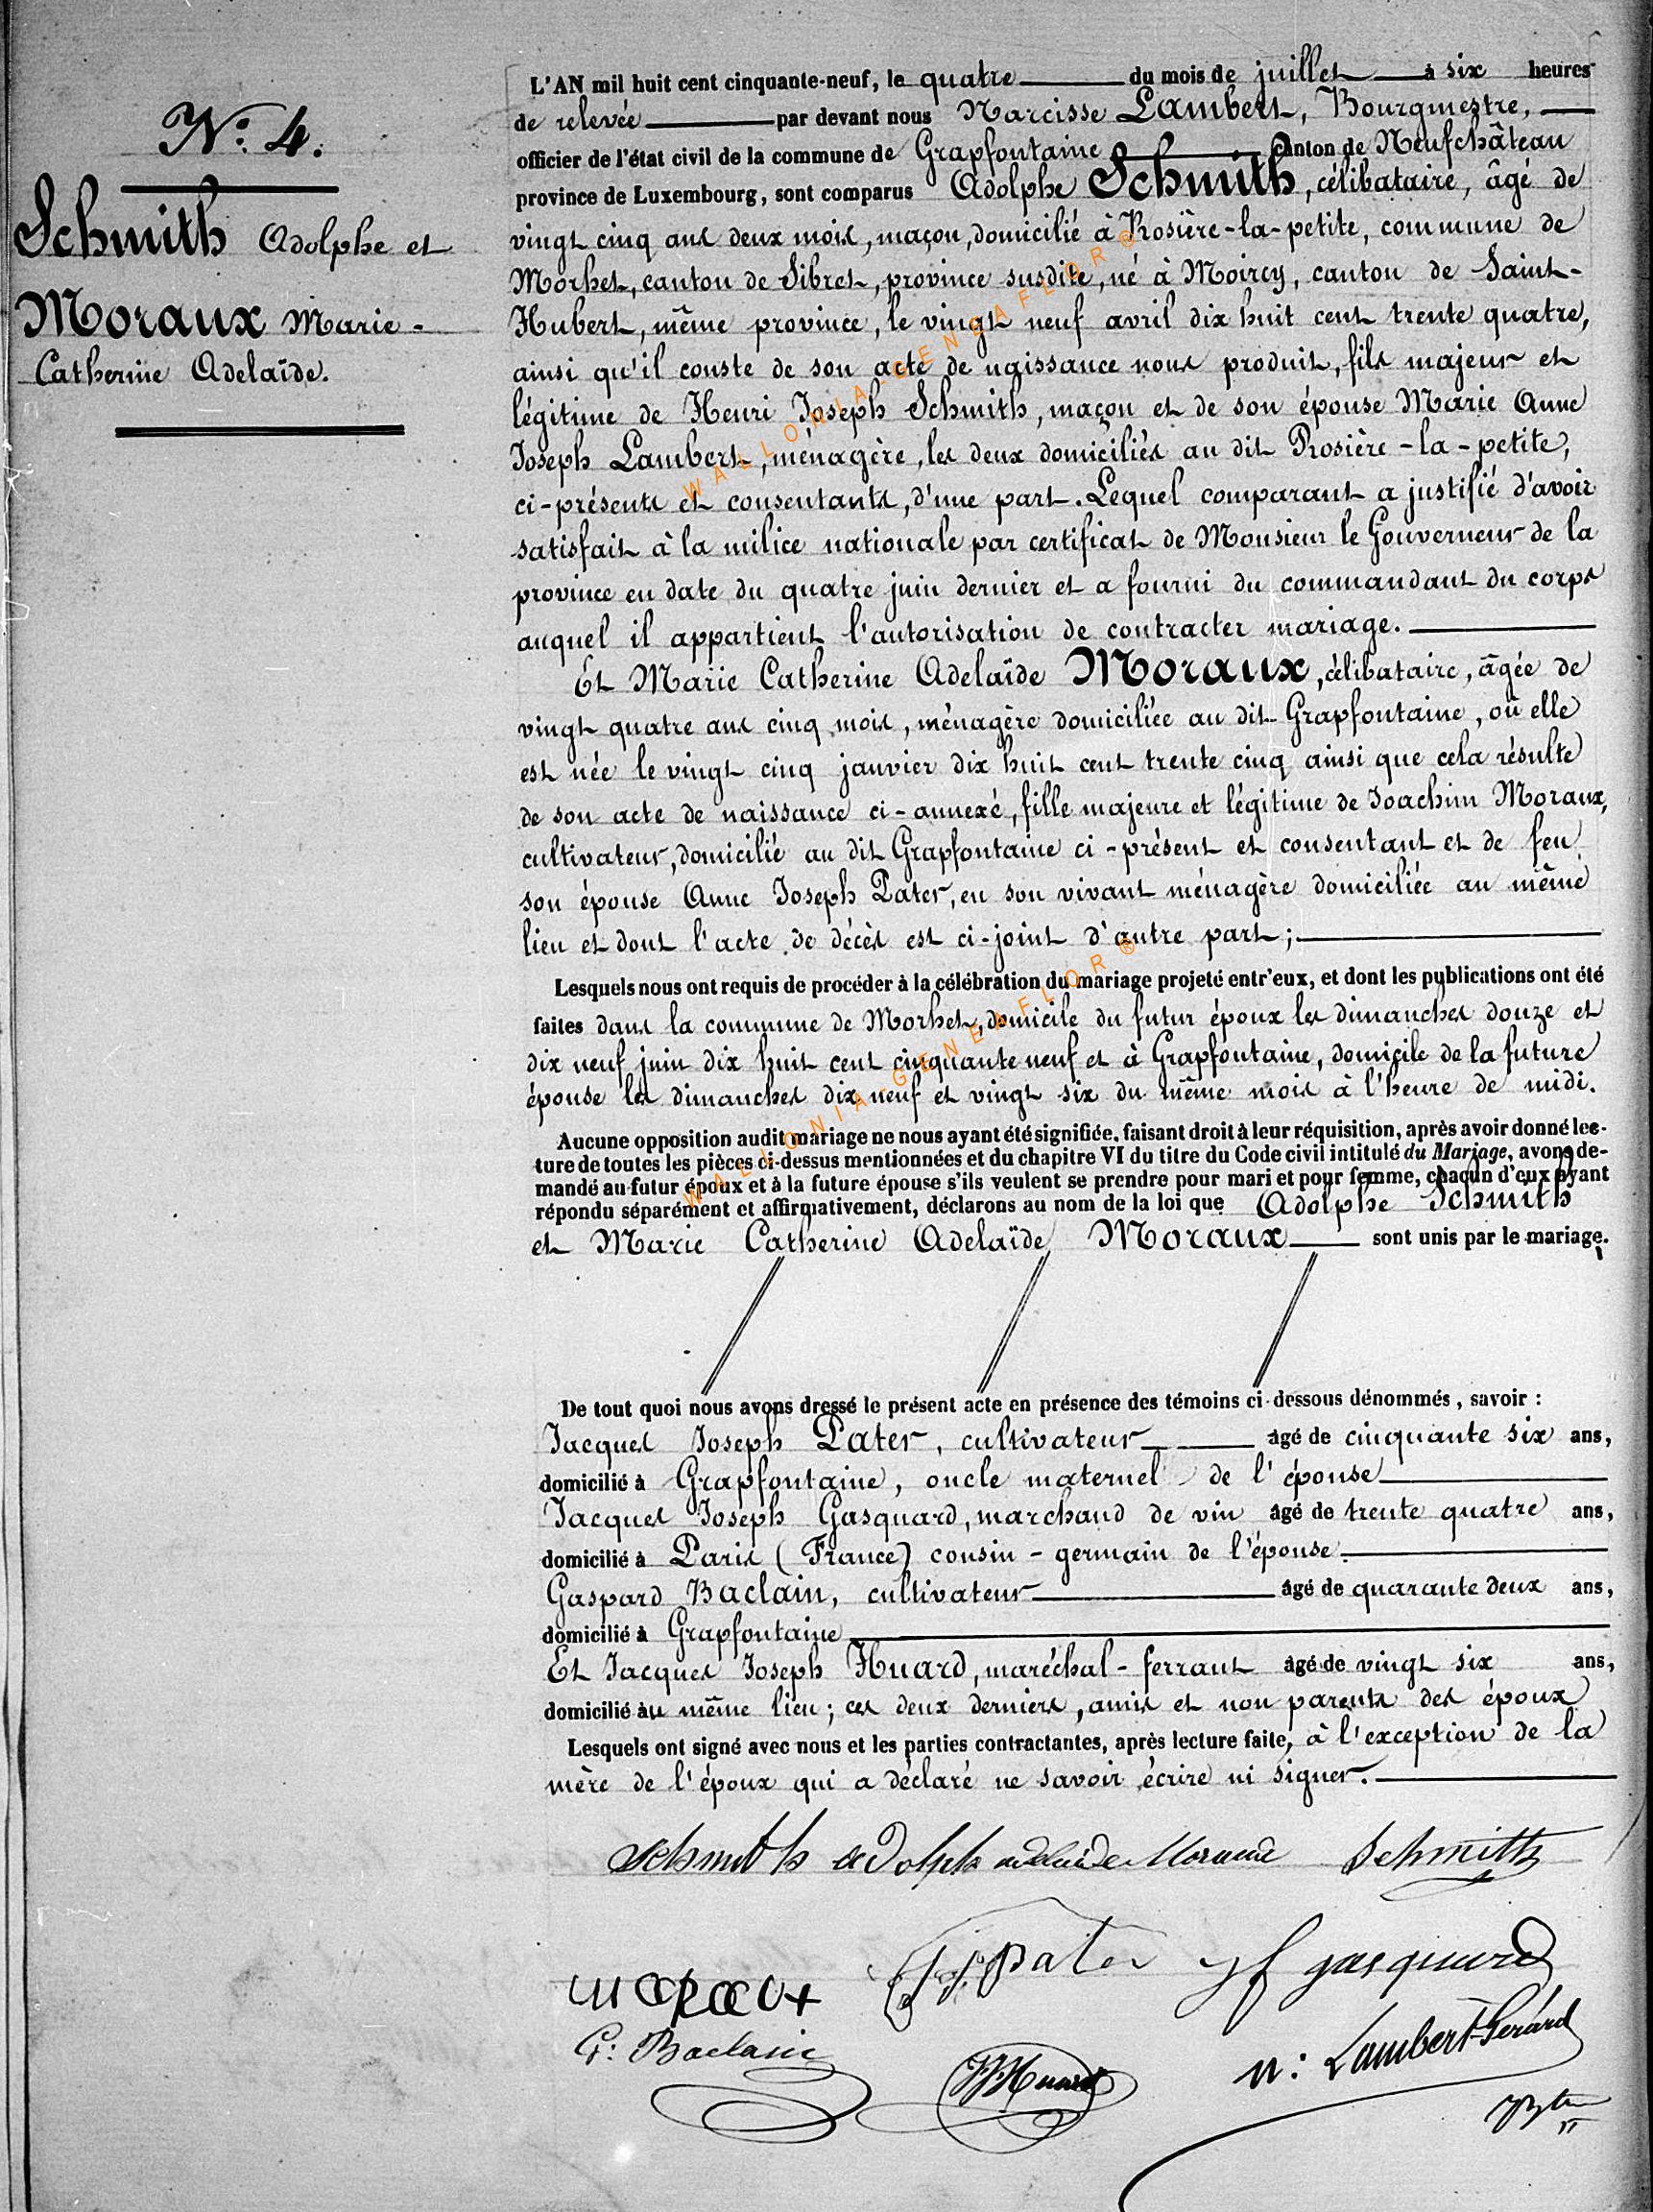 N° 4.
Schmith Adolphe et
Moraux Marie-
Catherine Adelaïde.
L'AN mil huit cent cinquante-neuf, le quatre du mois de juillet à six heures
de relevée par devant nous Narcisse Lambert, Bourgmestre,
officier de l'état civil de la commune de Grapfontaine canton de Neufchâteau
province de Luxembourg, sont comparus Adolphe Schmith, célibataire, âgé de
vingt cinq ans deux mois, maçon, domicilié à Rosière-la-petite, commune de
Morhet, canton de Sibret, province susdite, né à Moircy, canton de Saint-
Hubert, même province, le vingt neuf avril dix huit cent trente quatre,
ainsi qu'il conste de son acte de naissance nous produit, fils majeur et
légitime de Henri Joseph Schmith, maçon et de son épouse Marie Anne
Joseph Lambert, ménagère, les deux domiciliés au dit Rosière-la-petite,
ci-présents et consentants, d'une part. Lequel comparant a justifié d'avoir
satisfait à la milice nationale par certificat de Monsieur le Gouverneur de la
province en date du quatre juin dernier et a fourni du commandant du corps
auquel il appartient l'autorisation de contracter mariage.
Et Marie Catherine Adelaïde Moraux, célibataire, âgée de
vingt quatre ans cinq mois, ménagère domiciliée au dit Grapfontaine, où elle
est née le vingt cinq janvier dix huit cent trente cinq ainsi que cela résulte
de son acte de naissance ci-annexé, fille majeure et légitime de Joachim Moraux,
cultivateur, domicilié au dit Grapfontaine ci-présent et consentant et de feu
son épouse Anne Joseph Pater, en son vivant ménagère domiciliée au même
lieu et dont l'acte de décès est ci-joint d'autre part;
Lesquels nous ont requis de procéder à la célébration du mariage projeté entr'eux, et dont les publications ont été
faites dans la commune de Morhet, domicile du futur époux les dimanches douze et
dix neuf juin dix huit cent cinquante neuf et à Grapfontaine, domicile de la future
épouse les dimanches dix neuf et vingt six du même mois à l'heure de midi.
Aucune opposition audit mariage ne nous ayant été signifiée, faisant droit à leur réquisition, après avoir donné lec-
ture de toutes les pièces ci-dessus mentionnées et du chapitre VI du titre du Code civil intitulé du Mariage, avons de-
mandé au futur époux et à la future épouse s'ils veulent se prendre pour mari et pour femme, chacun d'eux ayant
répondu séparément et affirmativement, déclarons au nom de la loi que Adolphe Schmith
et Marie Catherine Adelaïde Moraux sont unis par le mariage.
De tout quoi nous avons dressé le présent acte en présence des témoins ci-dessous dénommés, savoir :
Jacques Joseph Pater, cultivateur âgé de cinquante six ans,
domicilié à Grapfontaine, oncle maternel de l'épouse
Jacques Joseph Gasquard, marchand de vin âgé de trente quatre ans,
domicilié à Paris (France) cousin-germain de l'épouse.
Gaspard Baclain, cultivateur âgé de quarante deux ans,
domicilié à Grapfontaine
Et Jacques Joseph Huard, maréchal-ferrant âgé de vingt six ans,
domicilié au même lieu; ces deux derniers, amis et non parents des époux
Lesquels ont signé avec nous et les parties contractantes, après lecture faite, à l'exception de la
mère de l'époux qui a déclaré ne savoir écrire ni signer.
Schmith Adolph adelaide Moraux Schmith
Moraux JJ Pater JJ gasquard
G: Baclain JJHuard n: Lambert-Gérard
WALLONIA-GENEAFLOR®
WALLONIA-GENEAFLOR®